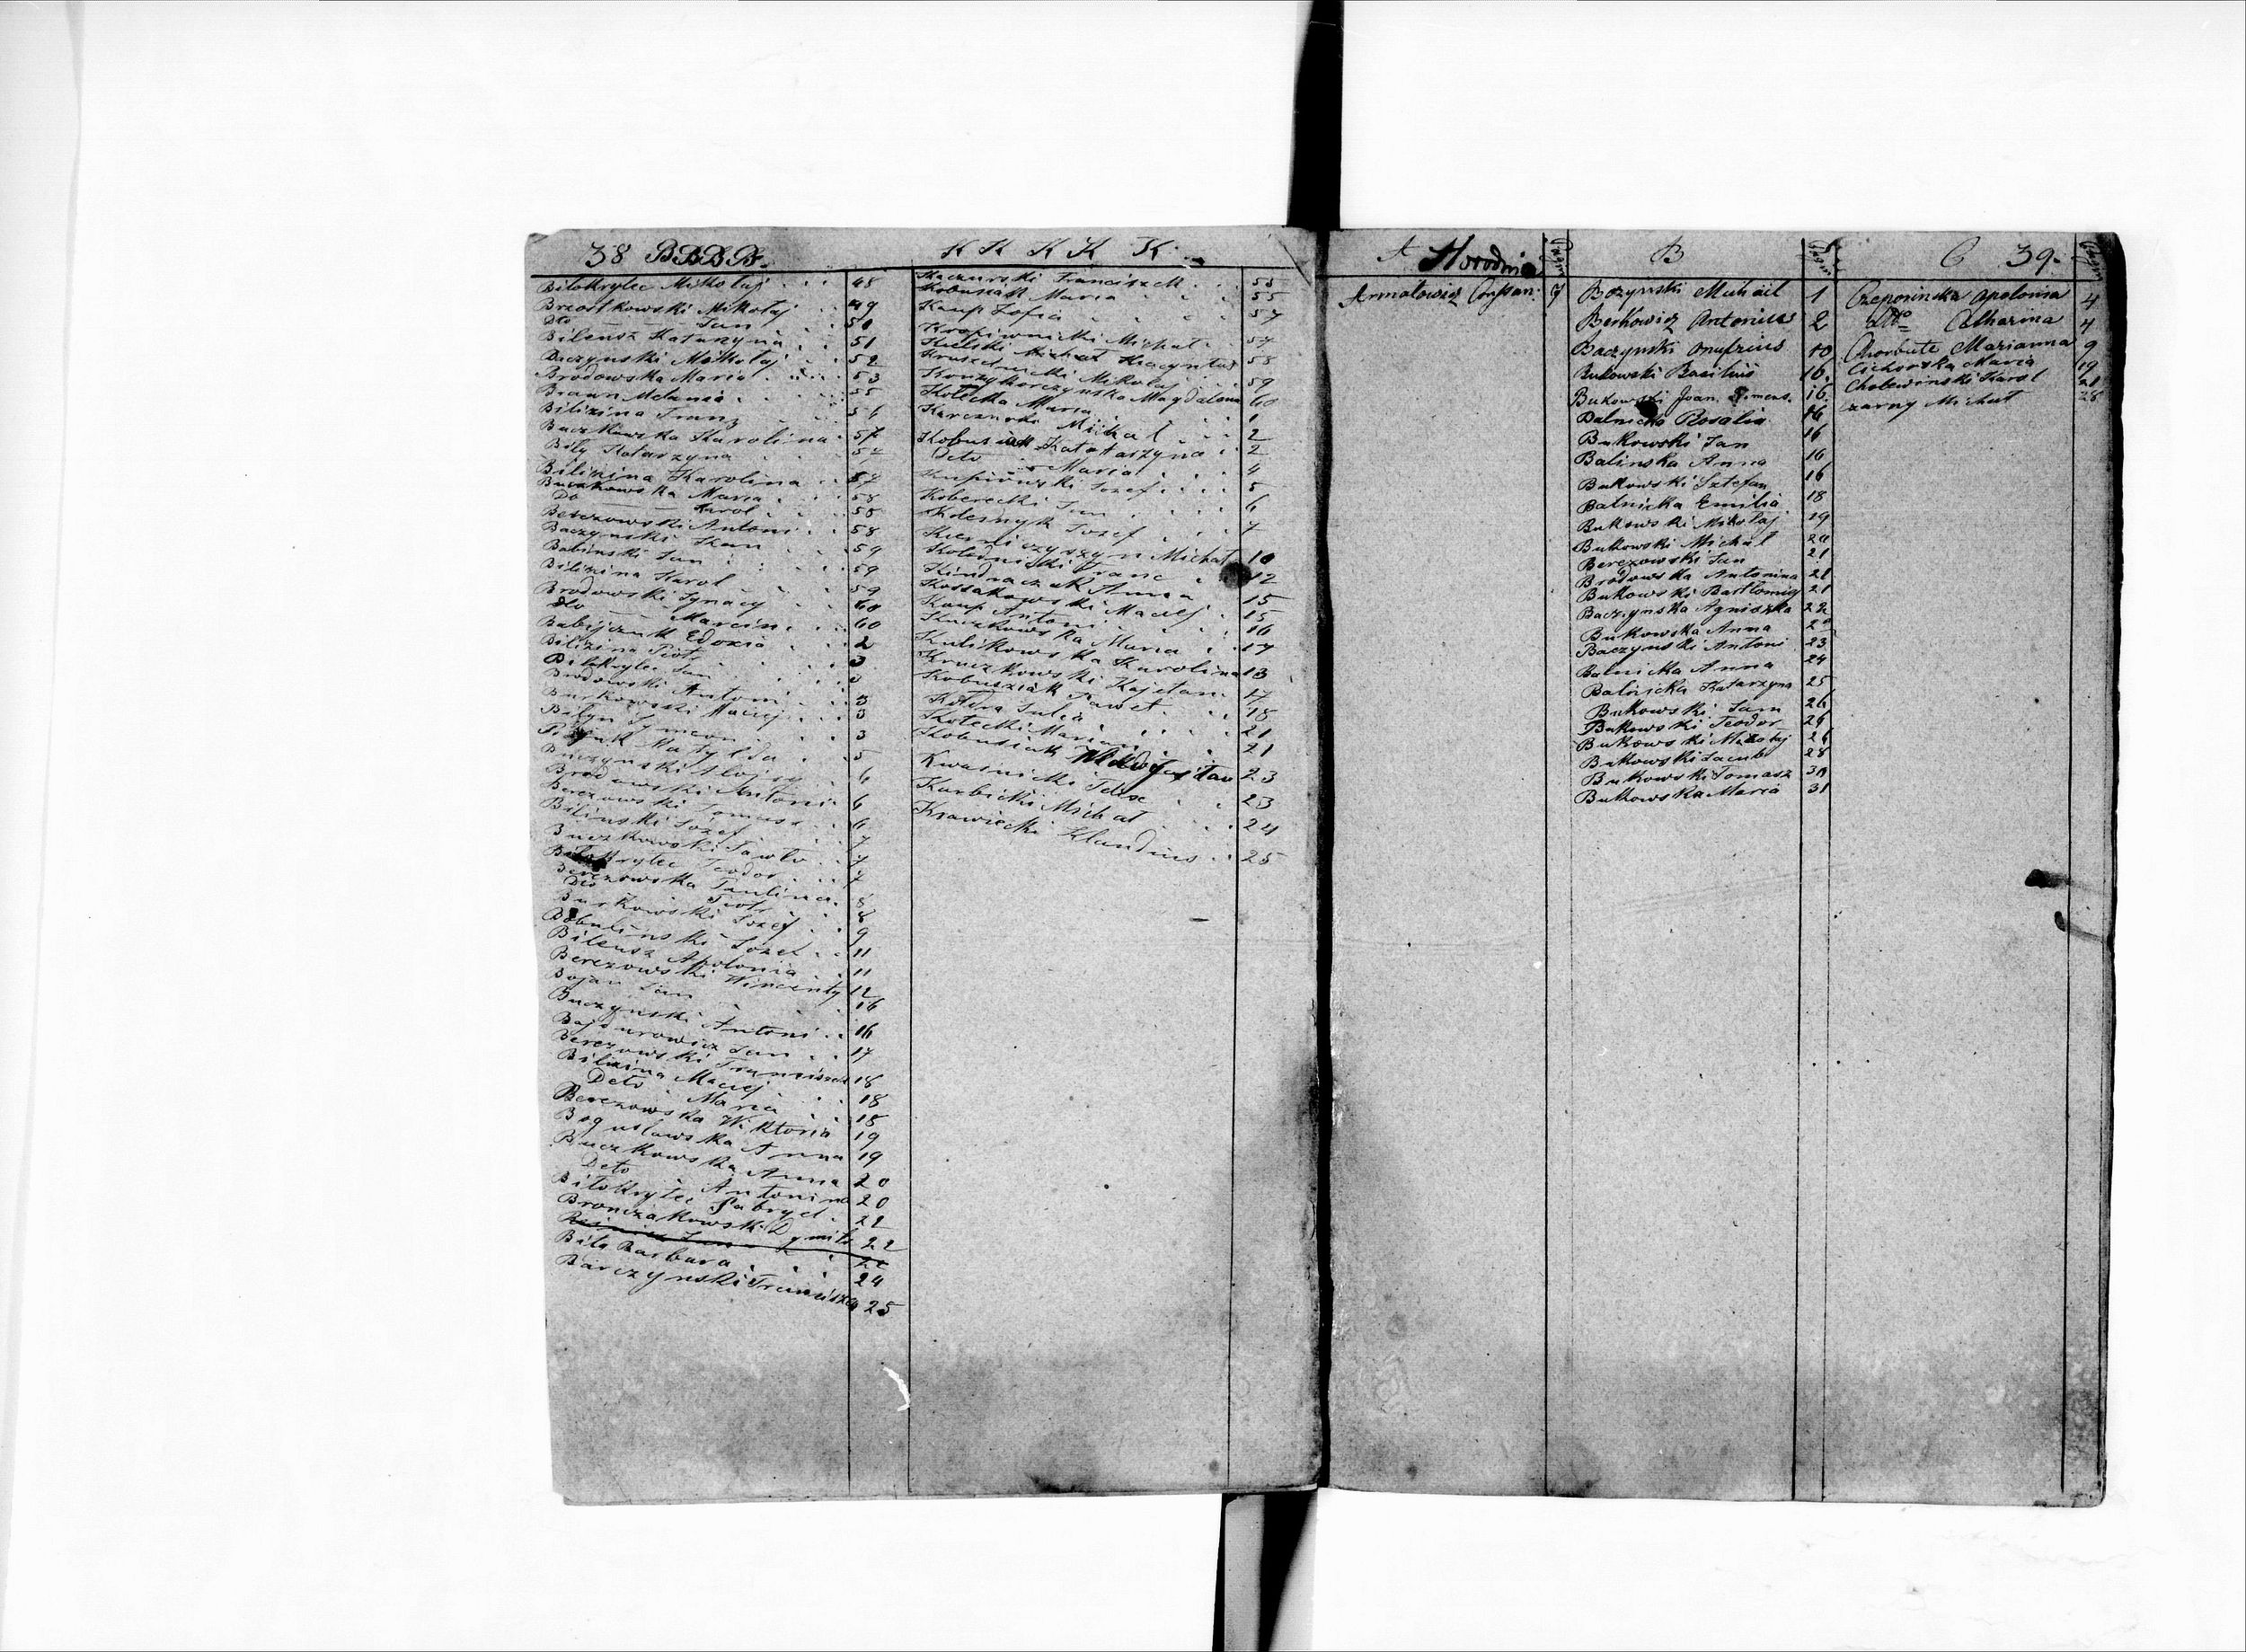 38 B B B B.
Biłokrylec Mikołaj 48
Brzostkowski Mikołaj 49
Dto Jan 50
Bileusz Katarzyna 51
Baczynski Mikołaj 52
Brodowska Maria 53
Braun Melania 55
Bilizina Franz 56
Buczkowska Karolina 57
Biły Katarzyna 57
Bilizina Karolina 57
Buczkowska Maria 58
Do Karol 58
Berezowski Antoni 58
Baczynski Jan 59
Babinski Jan 59
Bilizina Karol 59
Brodowski Ignacy 60
dto Marcin 60
Babijczuk Edoxia 2
Bilizina Piotr 3
Biłokrylec Jan 3
Brodowski Antoni 3
Burkowski Maciej 3
Bilyn Symeon 3
Matylda 5
Buczynski Aloizy 6
Brodowski Antoni 6
Berezowski Tomasz 6
Bilinski Jozef 7
Buczkowski Pawło 7
Biłokrylec Teodor 7
Berezowska Paulina 8
Dto Piotr 8
Burkowski Jozef 9
Bobulinski Jozef 11
Bileusz Apolonia 11
Berezowski Wincenty 12
Bojan Jan 16
Buczynski Antoni 16
Bajdurowicz Jan 17
Berezowski Franciszek 18
Bilizina Maciej 18
Deto Maria 18
Berezowska Wiktoria 19
Bogusławska Anna 19
Buczkowska Anna 20
Deto Antonina 20
Biłokrylec Gabryel 22
Bronczakowski Dymitr 22
Biła Barbara 24
Barczynski Franciszek 25
K K K K K.
Kaczurski Franciszek 53
Kobuszak Maria 55
Kaup Zofia 57
Kropiwnicki Michał 57
Kielski Michał Hiacyntus 58
Kruszelnicki Mikołaj 59
Korzykorczynska Magdalena 60
Kotecka Maria 1
Karczewski Michał 2
Kobusiak Katarzyna 2
Deto Maria 4
Jozef 5
Koberecki Jan 6
Kolesnyk Jozef 7
Kierniczyszyn Michał 10
Kolednicki Franc 12
Kindraczuk Anna 15
Kossakowski Maciej 15
Kaup Antoni 16
Kaczkowska Maria 17
Kulikowska Karolina 13
Kruczkowski Kajetan 17
Kobusziak Paweł 18
Kotera Julia 21
Kotecki Marian 21
Kobusiak Władysław 23
Kwasnicki Felix 23
Karbicki Michał 24
Krawiecki Klaudius 25
A Horodnica
Armatowicz Constan: 7
B
Bozynski Michael 1
Berkowicz Antonius 2
Baczynski Onufrius 10
Bukowski Basilius 16.
Bukowski Joan. Clemens. 16
Balnicka Rosalia 16
Bukowski Jan 16
Balinska Anna 16
Bukowski Sztefan 16
Balnicka Emilia 18
Bukowski Mikołaj 19
Bukowski Michał 20
Berezowski Jan 21
Brodowska Antonina 21
Bukowski Bartłomiej 21
Baczynska Agniszka 22
Bukowska Anna 2
Baczynski Antoni 23
Balnicka Anna 24
Balnicka Katarzyna 25
Bukowski Jan 26
Bukowski Teodor 26
Bukowski Mikołaj 26
Bukowski Jacub 28
Bukowski Tomasz 30
Bukowska Maria 31
C 39.
Czeposinska Apolonia 4
Dtto Catharina 4
Chorbute Marianna 9
Cichorska Maria 19
Cholewinski Karol 21
Czarny Michał 28